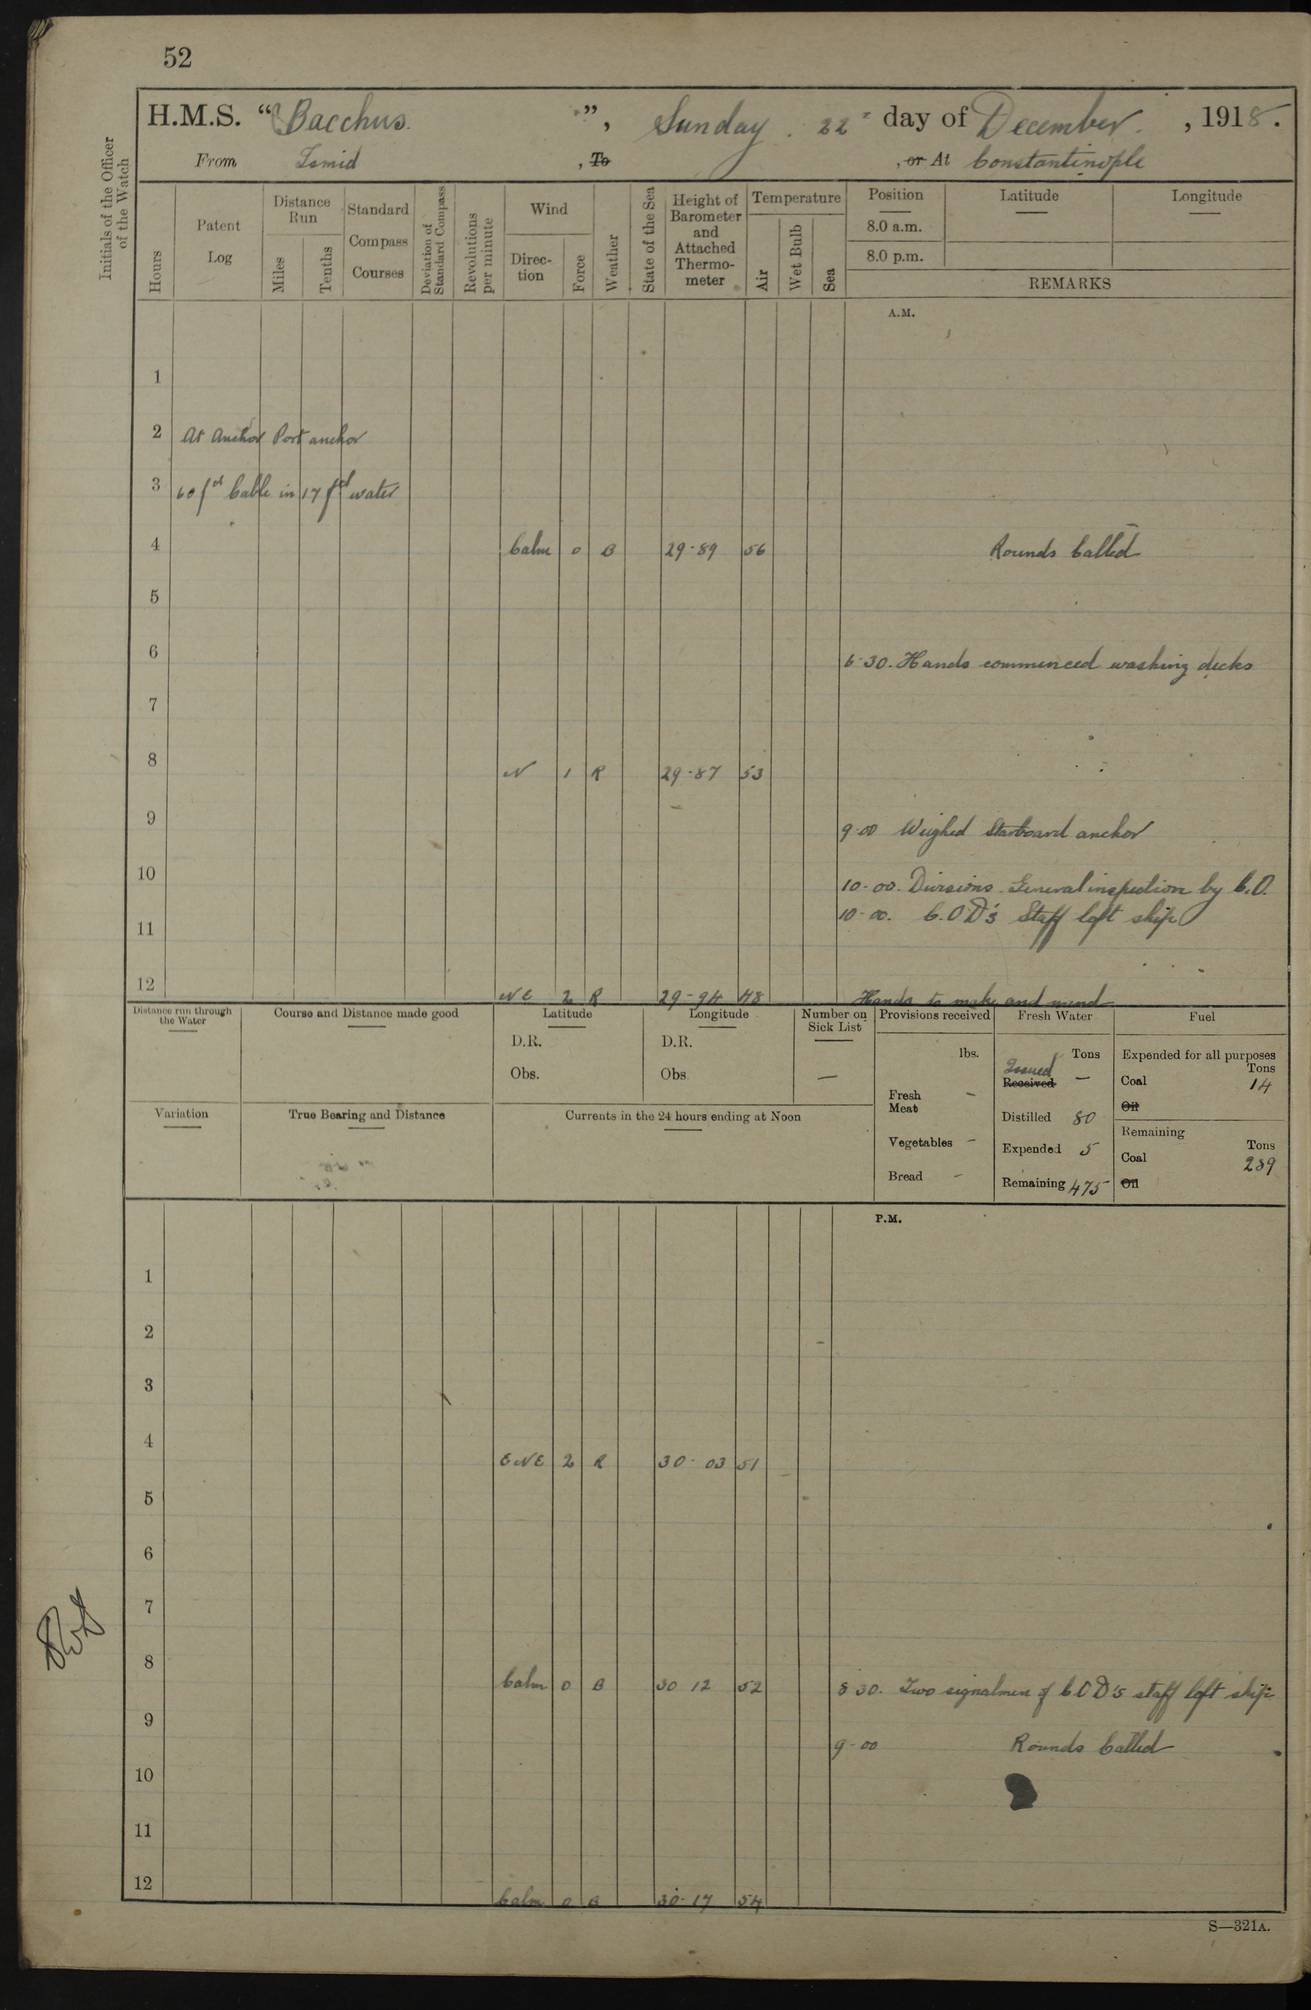 52
H.M.S. "Bacchus", Sunday. 22 day of December, 1918.
From Ismid, To, or At Constantinople
Initials of the Officer of the Watch
Hours
Patent Log
Distance Run
Miles
Tenths
Standard Compass Courses
Deviation of Standard Compass
Revolutions per minute
Wind
Direc-tion
Force
Weather
State of the Sea
Height of Barometer and Attached Thermo-meter
Temperature
Air
Wet Bulb
Sea
Position
8.0 a.m.
8.0 p.m.
Latitude
Longitude
REMARKS
A.M.
1
2 At Anchor Port anchor
3 60 fms Cable in 17 fms water
4 Calm 0 B 29-89 56 Rounds Called
5
6 6-30. Hands commenced washing decks
7
8 N 1 R 29-87 53
9 9-00 Weighed Starboard anchor
10 10-00. Divisions. General inspection by C.O.
10-00. C.O.D's Staff left ship
11
12 NE 2 R 29-94 48 Hands to make and mend
Distance run through the Water
Course and Distance made good
Latitude
D.R.
Obs.
Longitude
D.R.
Obs
Number on Sick List
—
Provisions received
lbs.
Fresh Meat -
Vegetables -
Bread -
Fresh Water
Tons
Issued
Received —
Distilled 80
Expended 5
Remaining 475
Fuel
Expended for all purposes
Tons
Coal 14
Oil
Remaining
Tons
Coal 239
Oil
Variation
True Bearing and Distance
Currents in the 24 hours ending at Noon
P.M.
1
2
3
4 ENE 2 R 30-03 51
5
6
7
8 Calm 0 B 30 12 52 8 30. Two signalmen of C O D's staff left ship
9 9-00 Rounds Called
10
11
12 Calm 0 B 30-17 54
S—321A.